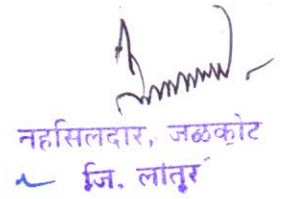 नहसिलदार, जळकोट
जि. लातूर